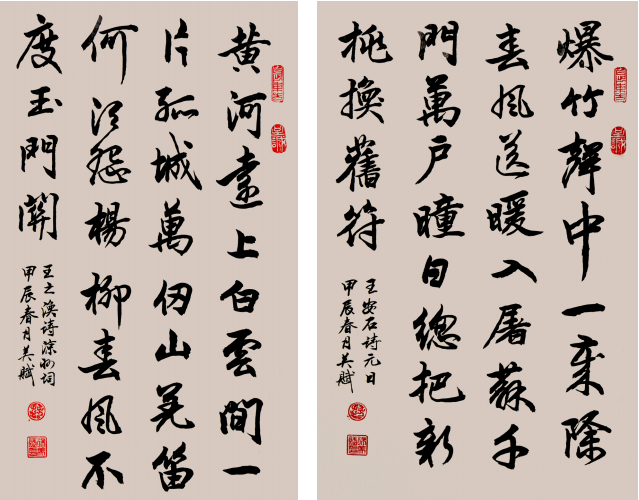 黄河遠上白雲間一
片孤城萬仞山羌笛
何須怨楊柳春風不
度玉門關
王之渙诗涼州词
甲辰春月美赋
爆竹聲中一歲除
春風送暖入屠蘇千
門萬戶曈日總把新
桃換舊符
王安石诗元日
甲辰春月美赋